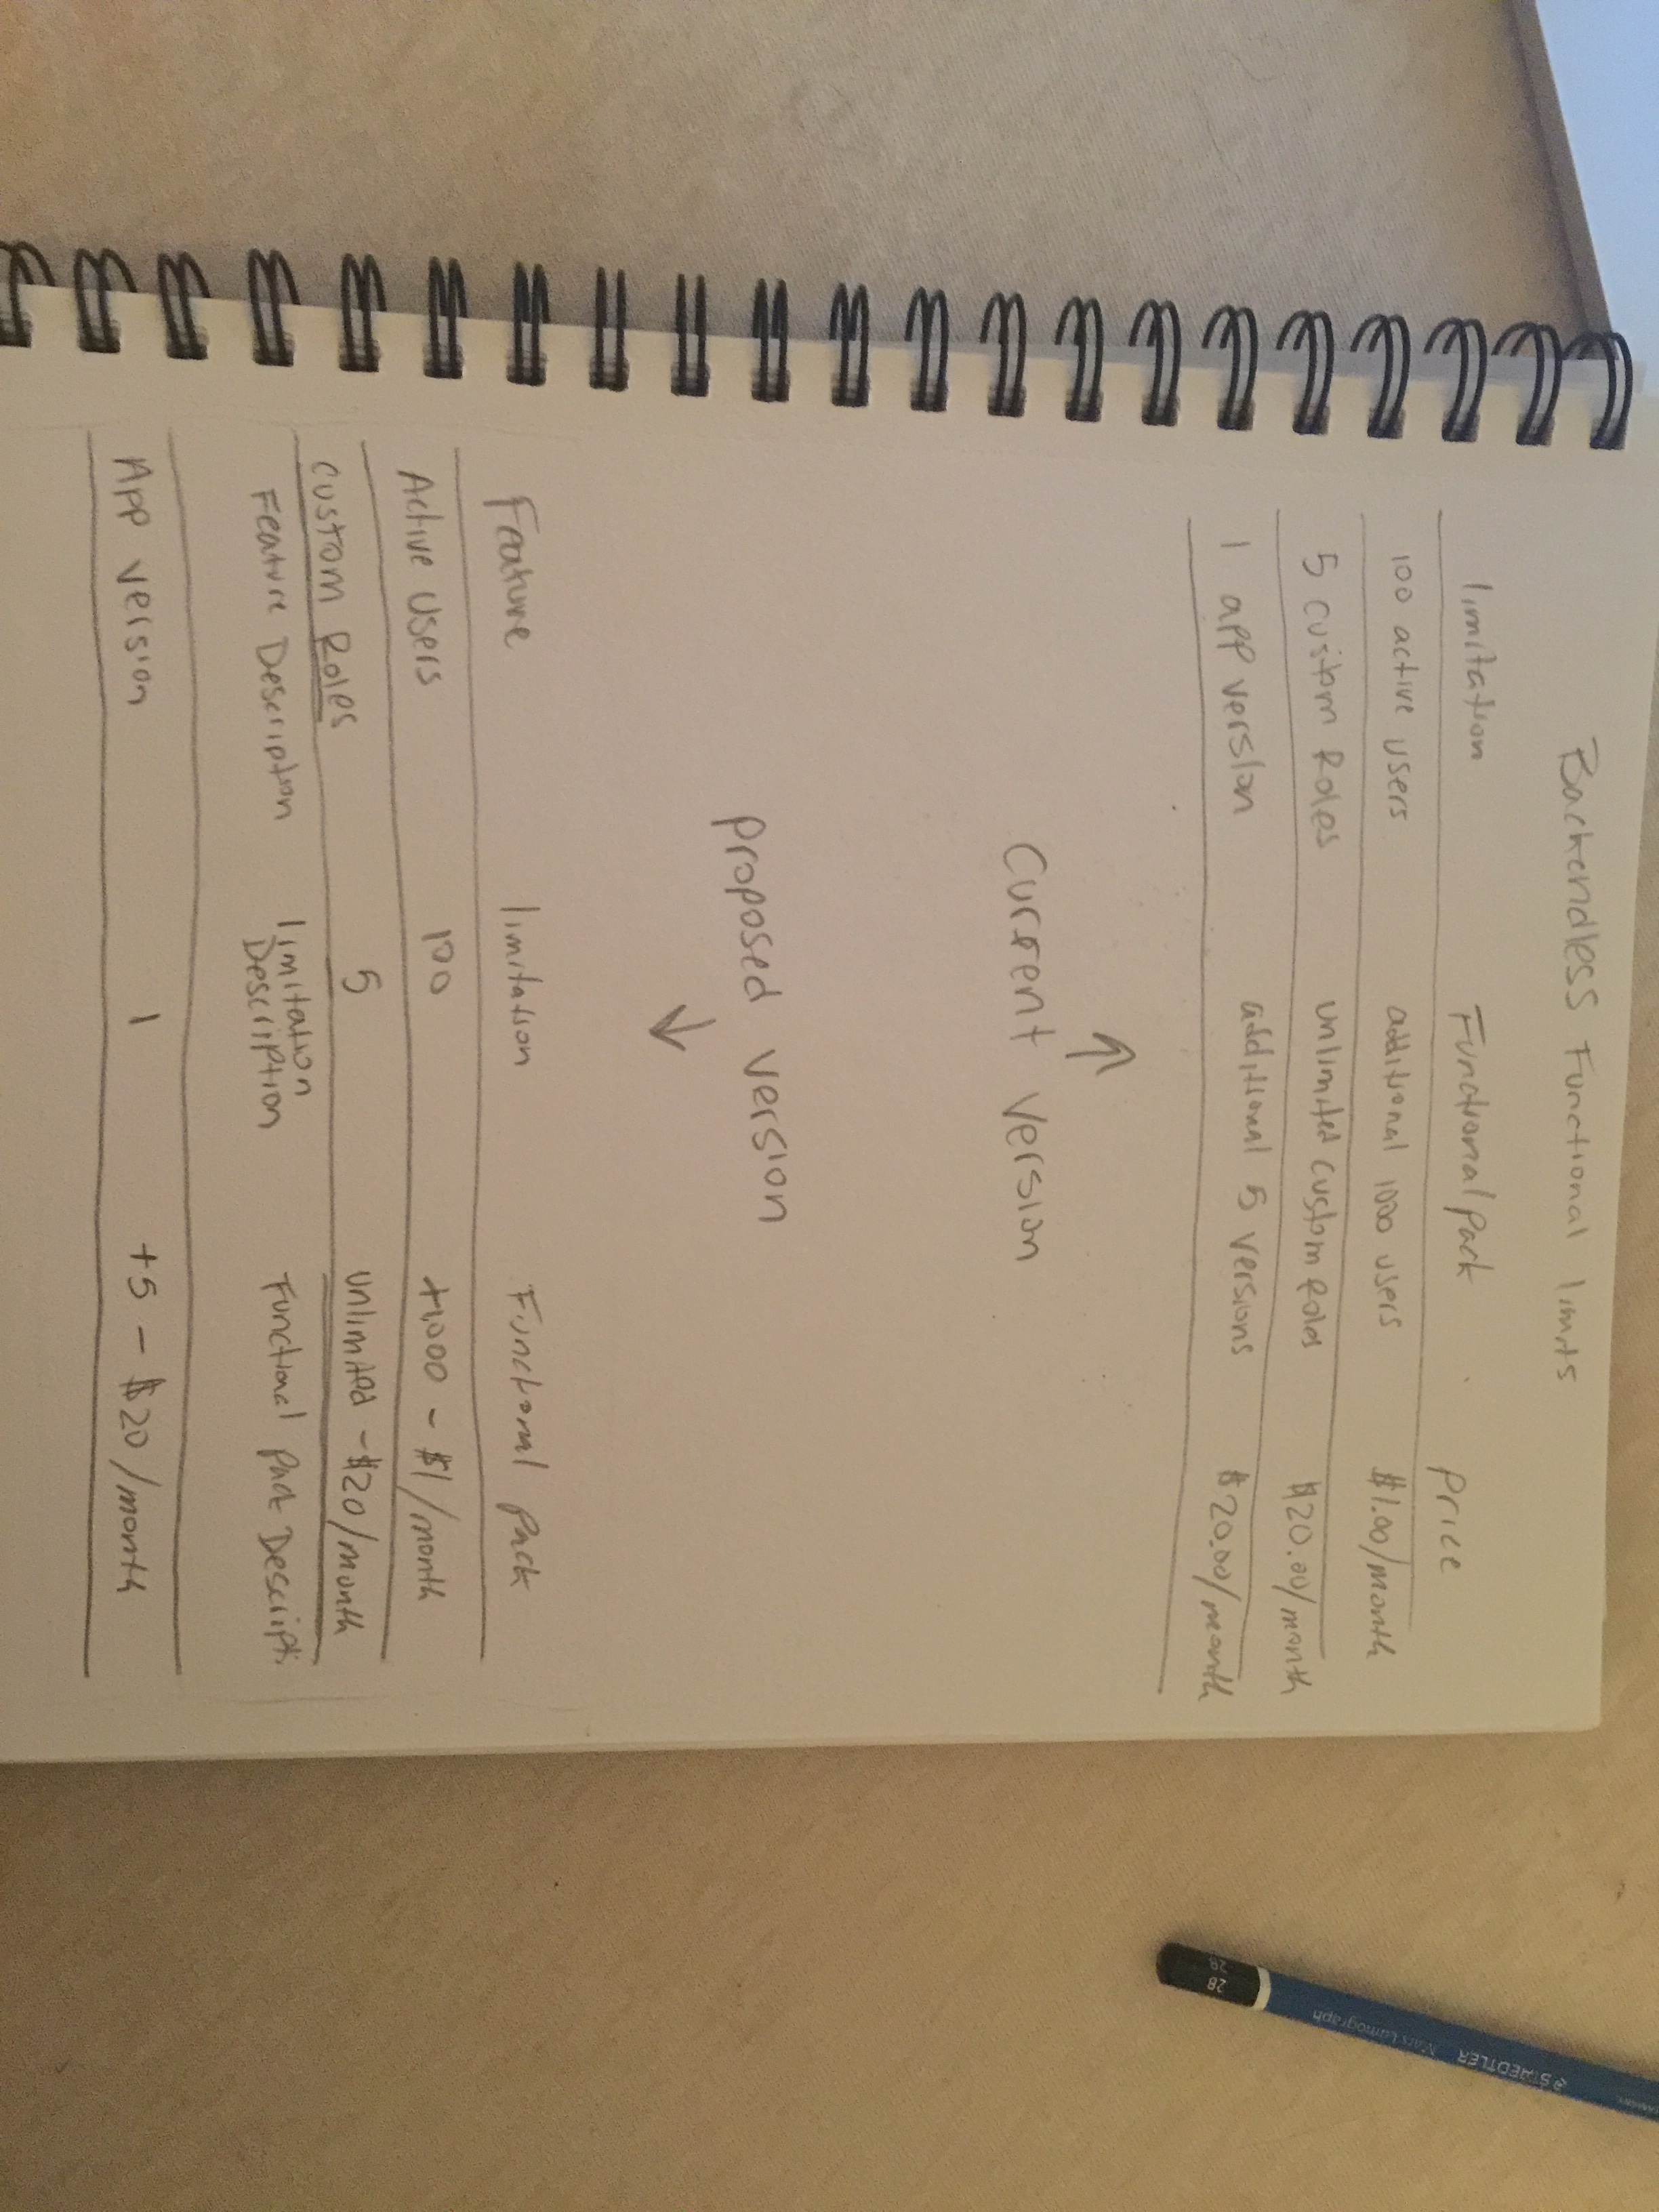 Backendless Functional limits
limitation Functional Pack Price
100 active users additional 1000 users $1.00/month
5 custom Roles unlimited custom Roles $20.00/month
1 app version additional 5 versions $20.00/month
Current Version
proposed version
Feature limitation Functional Pack
Active Users 100 +1,000 - $1/month
Custom Roles 5 unlimited - $20/month
Feature Description limitation Description Functional Pack Descripti
App version 1 +5 - $20/month
2B
2B
STAEDTLER Mars Lumograph